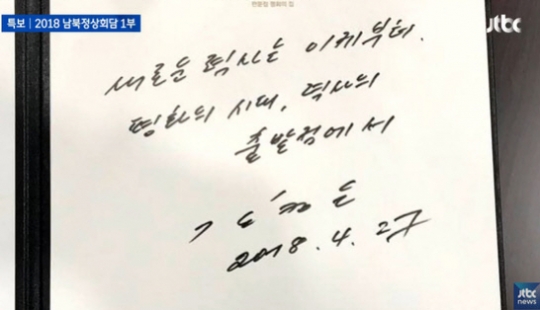 특보 | 2018 남북정상회담 1부
jtbc
판문점 평화의 집
새로운 력사는 이제부터.
평화의 시대, 력사의
출발점에서
김정은
2018. 4. 27
jtbc
news